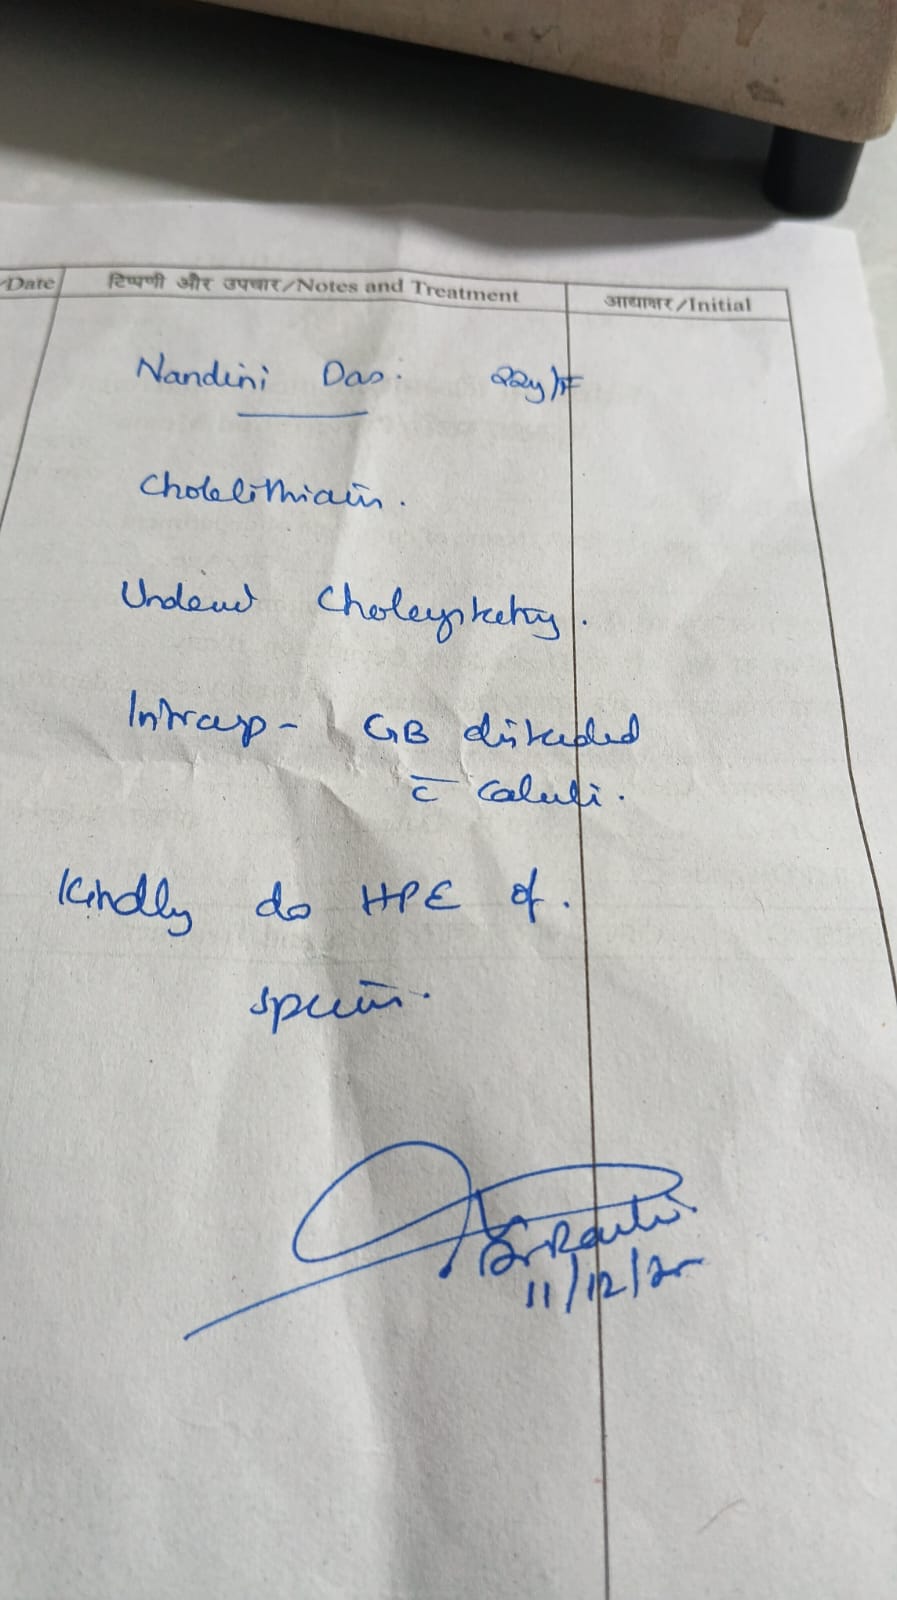 /Date टिप्पणी और उपचार/Notes and Treatment आद्याक्षर/Initial
Nandini Das. 22y/F
Cholelithiasis.
Underwent Cholecystectomy.
Intraop - GB distended
c̄ calculi.
Kindly do HPE of.
specimen.
11/12/25